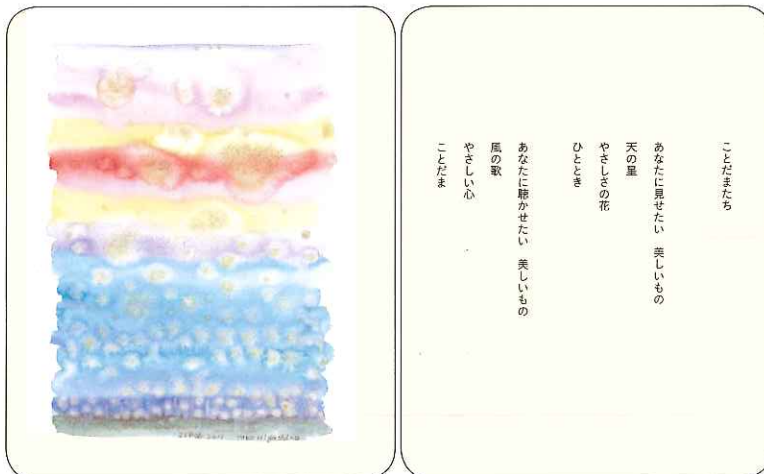 ことだまたち
あなたに見せたい　美しいもの
天の星
やさしさの花
ひととき
あなたに聴かせたい　美しいもの
風の歌
やさしい心
ことだま